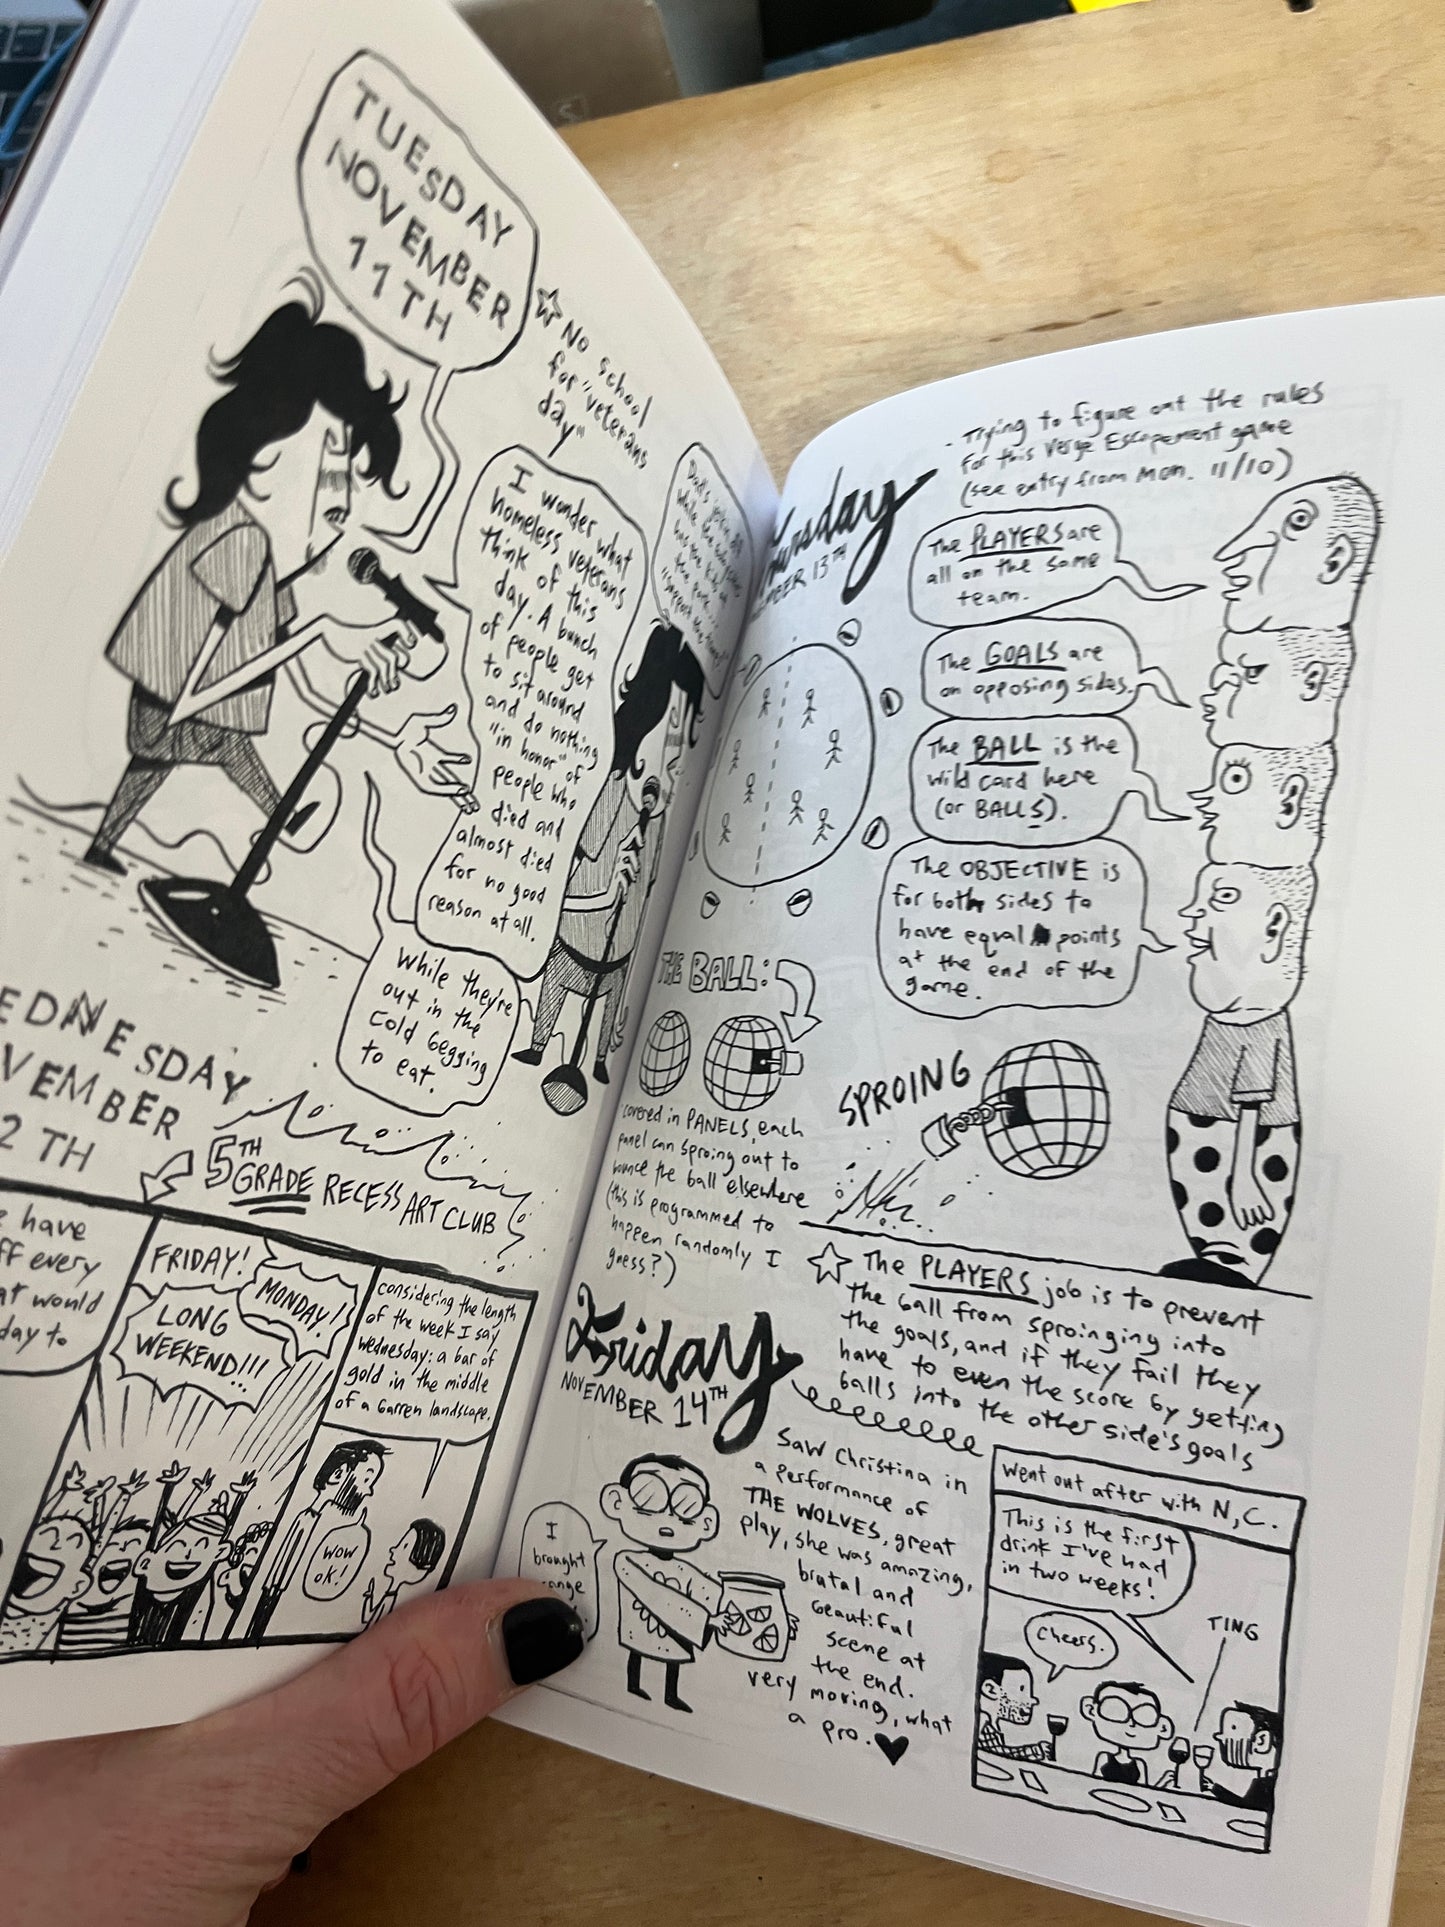 TUESDAY
NOVEMBER
11TH
No School
for "veterans
day"
I wonder what
homeless veterans
think of this
day. A bunch
of people get
to sit around
and do nothing
"in honor" of
people who
died and
almost died
for no good
reason at all.
While they're
out in the
cold begging
to eat.
EDNESDAY
VEMBER
2TH
5TH
GRADE RECESS ART CLUB
have
ff every
at would
day to
FRIDAY!
MONDAY!
LONG
WEEKEND!!!
considering the length
of the week I say
wednesday: a bar of
gold in the middle
of a barren landscape.
wow
ok!
ursday
13TH
- Trying to figure out the rules
for this Verge Escapement game
(see entry from Mon. 11/10)
The PLAYERS are
all on the same
team.
The GOALS are
on opposing sides.
The BALL is the
wild card here
(or BALLS).
The OBJECTIVE is
for both sides to
have equal points
at the end of the
game.
THE BALL:
covered in PANELS, each
panel can sproing out to
bounce the ball elsewhere
(this is programmed to
happen randomly I
guess?)
SPROING
The PLAYERS job is to prevent
the ball from sproinging into
the goals, and if they fail they
have to even the score by getting
balls into the other side's goals
Friday
NOVEMBER 14TH
I
brought
Saw Christina in
a performance of
THE WOLVES, great
play, she was amazing,
brutal and
beautiful
scene at
the end.
very moving, what
a pro.
went out after with N, C.
This is the first
drink I've had
in two weeks!
Cheers.
TING